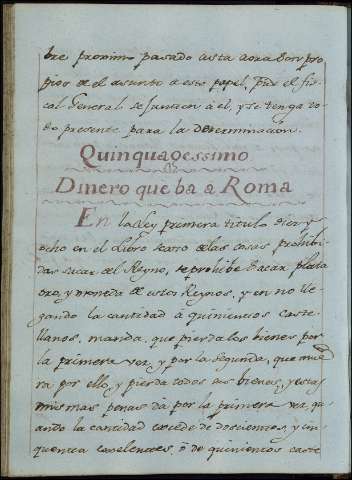 bre proximo pasado asta aora son pro
pios de el asunto a este papel, pide el fis
cal General se junten à el, y se tenga to
do presente para la determinacion.
Quinquagessimo
Dinero que ba a Roma
En la ley primera titulo diez y
ocho en el Libro sexto de las cosas prohibi
das sacar del Reyno, se prohibe sacar plata
oro, y moneda de estos Reynos, y en no lle
gando la cantidad à quinientos caste
llanos, manda, que pierda los bienes por
la primera vez, y por la segunda, que mue
ra por ello, y pierda todos sus bienes, y estas
mismas penas dà por la primera vez, qu
ando la cantidad excede de doscientos, y cin
quenta excelentes, ò de quinientos caste